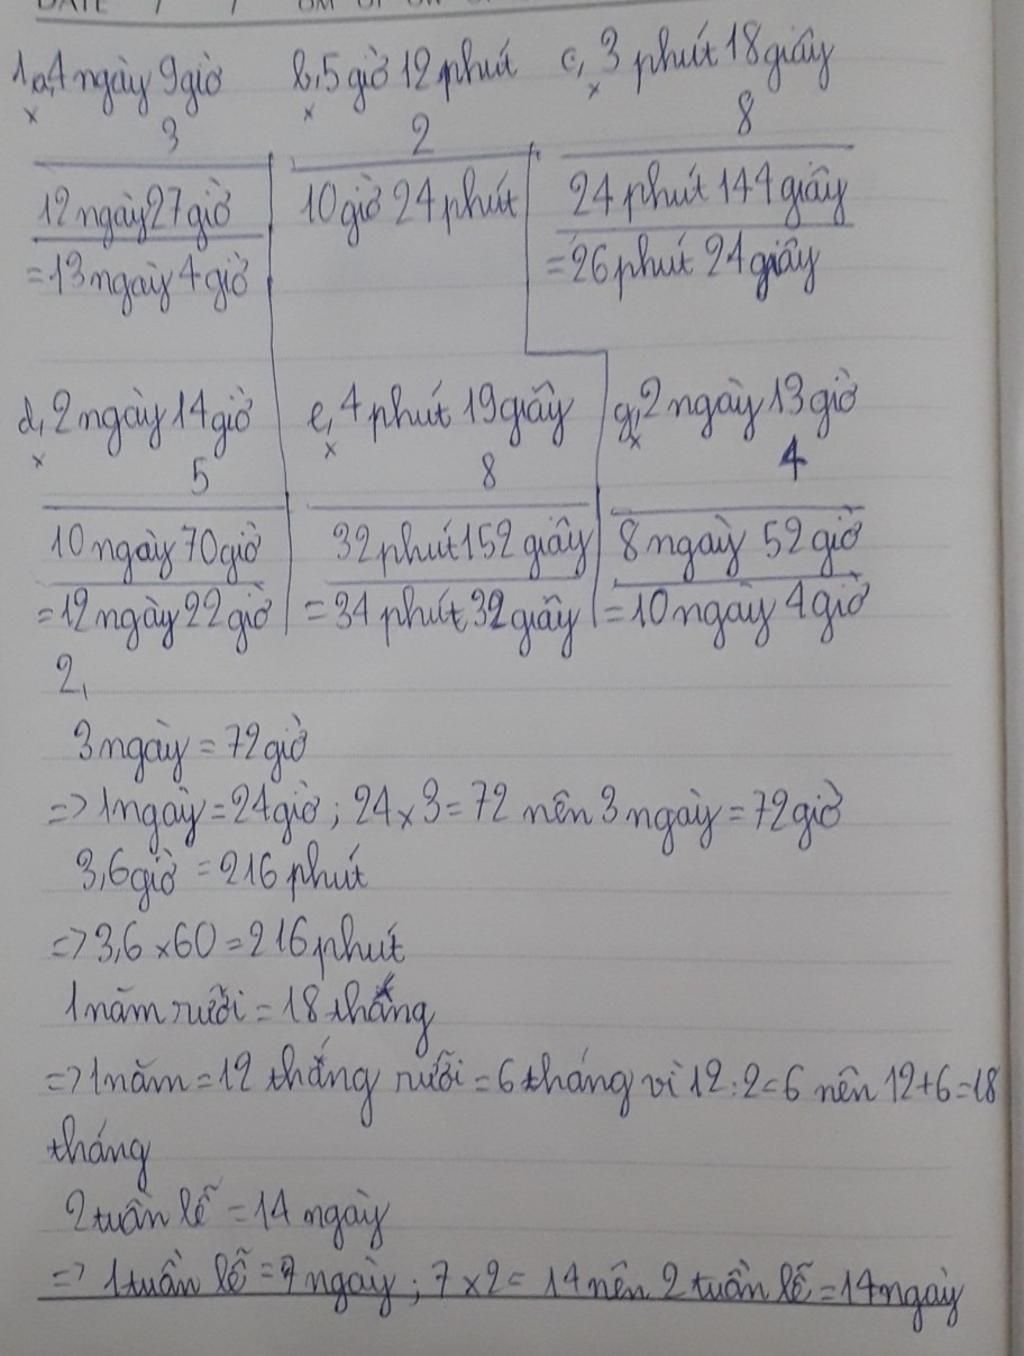 DATE / /
1, a, 4 ngày 9 giờ b, 5 giờ 12 phút c, 3 phút 18 giây
x x x
3 2 8
12 ngày 27 giờ 10 giờ 24 phút 24 phút 144 giây
= 13 ngày 4 giờ = 26 phút 24 giây
d, 2 ngày 14 giờ e, 4 phút 19 giây g, 2 ngày 13 giờ
x x x
5 8 4
10 ngày 70 giờ 32 phút 152 giây 8 ngày 52 giờ
= 12 ngày 22 giờ = 34 phút 32 giây = 10 ngày 4 giờ
2,
3 ngày = 72 giờ
=> 1 ngày = 24 giờ ; 24 x 3 = 72 nên 3 ngày = 72 giờ
3,6 giờ = 216 phút
=> 3,6 x 60 = 216 phút
1 năm rưỡi = 18 tháng
=> 1 năm = 12 tháng rưỡi = 6 tháng vì 12 : 2 = 6 nên 12 + 6 = 18
tháng
2 tuần lễ = 14 ngày
=> 1 tuần lễ = 7 ngày ; 7 x 2 = 14 nên 2 tuần lễ = 14 ngày